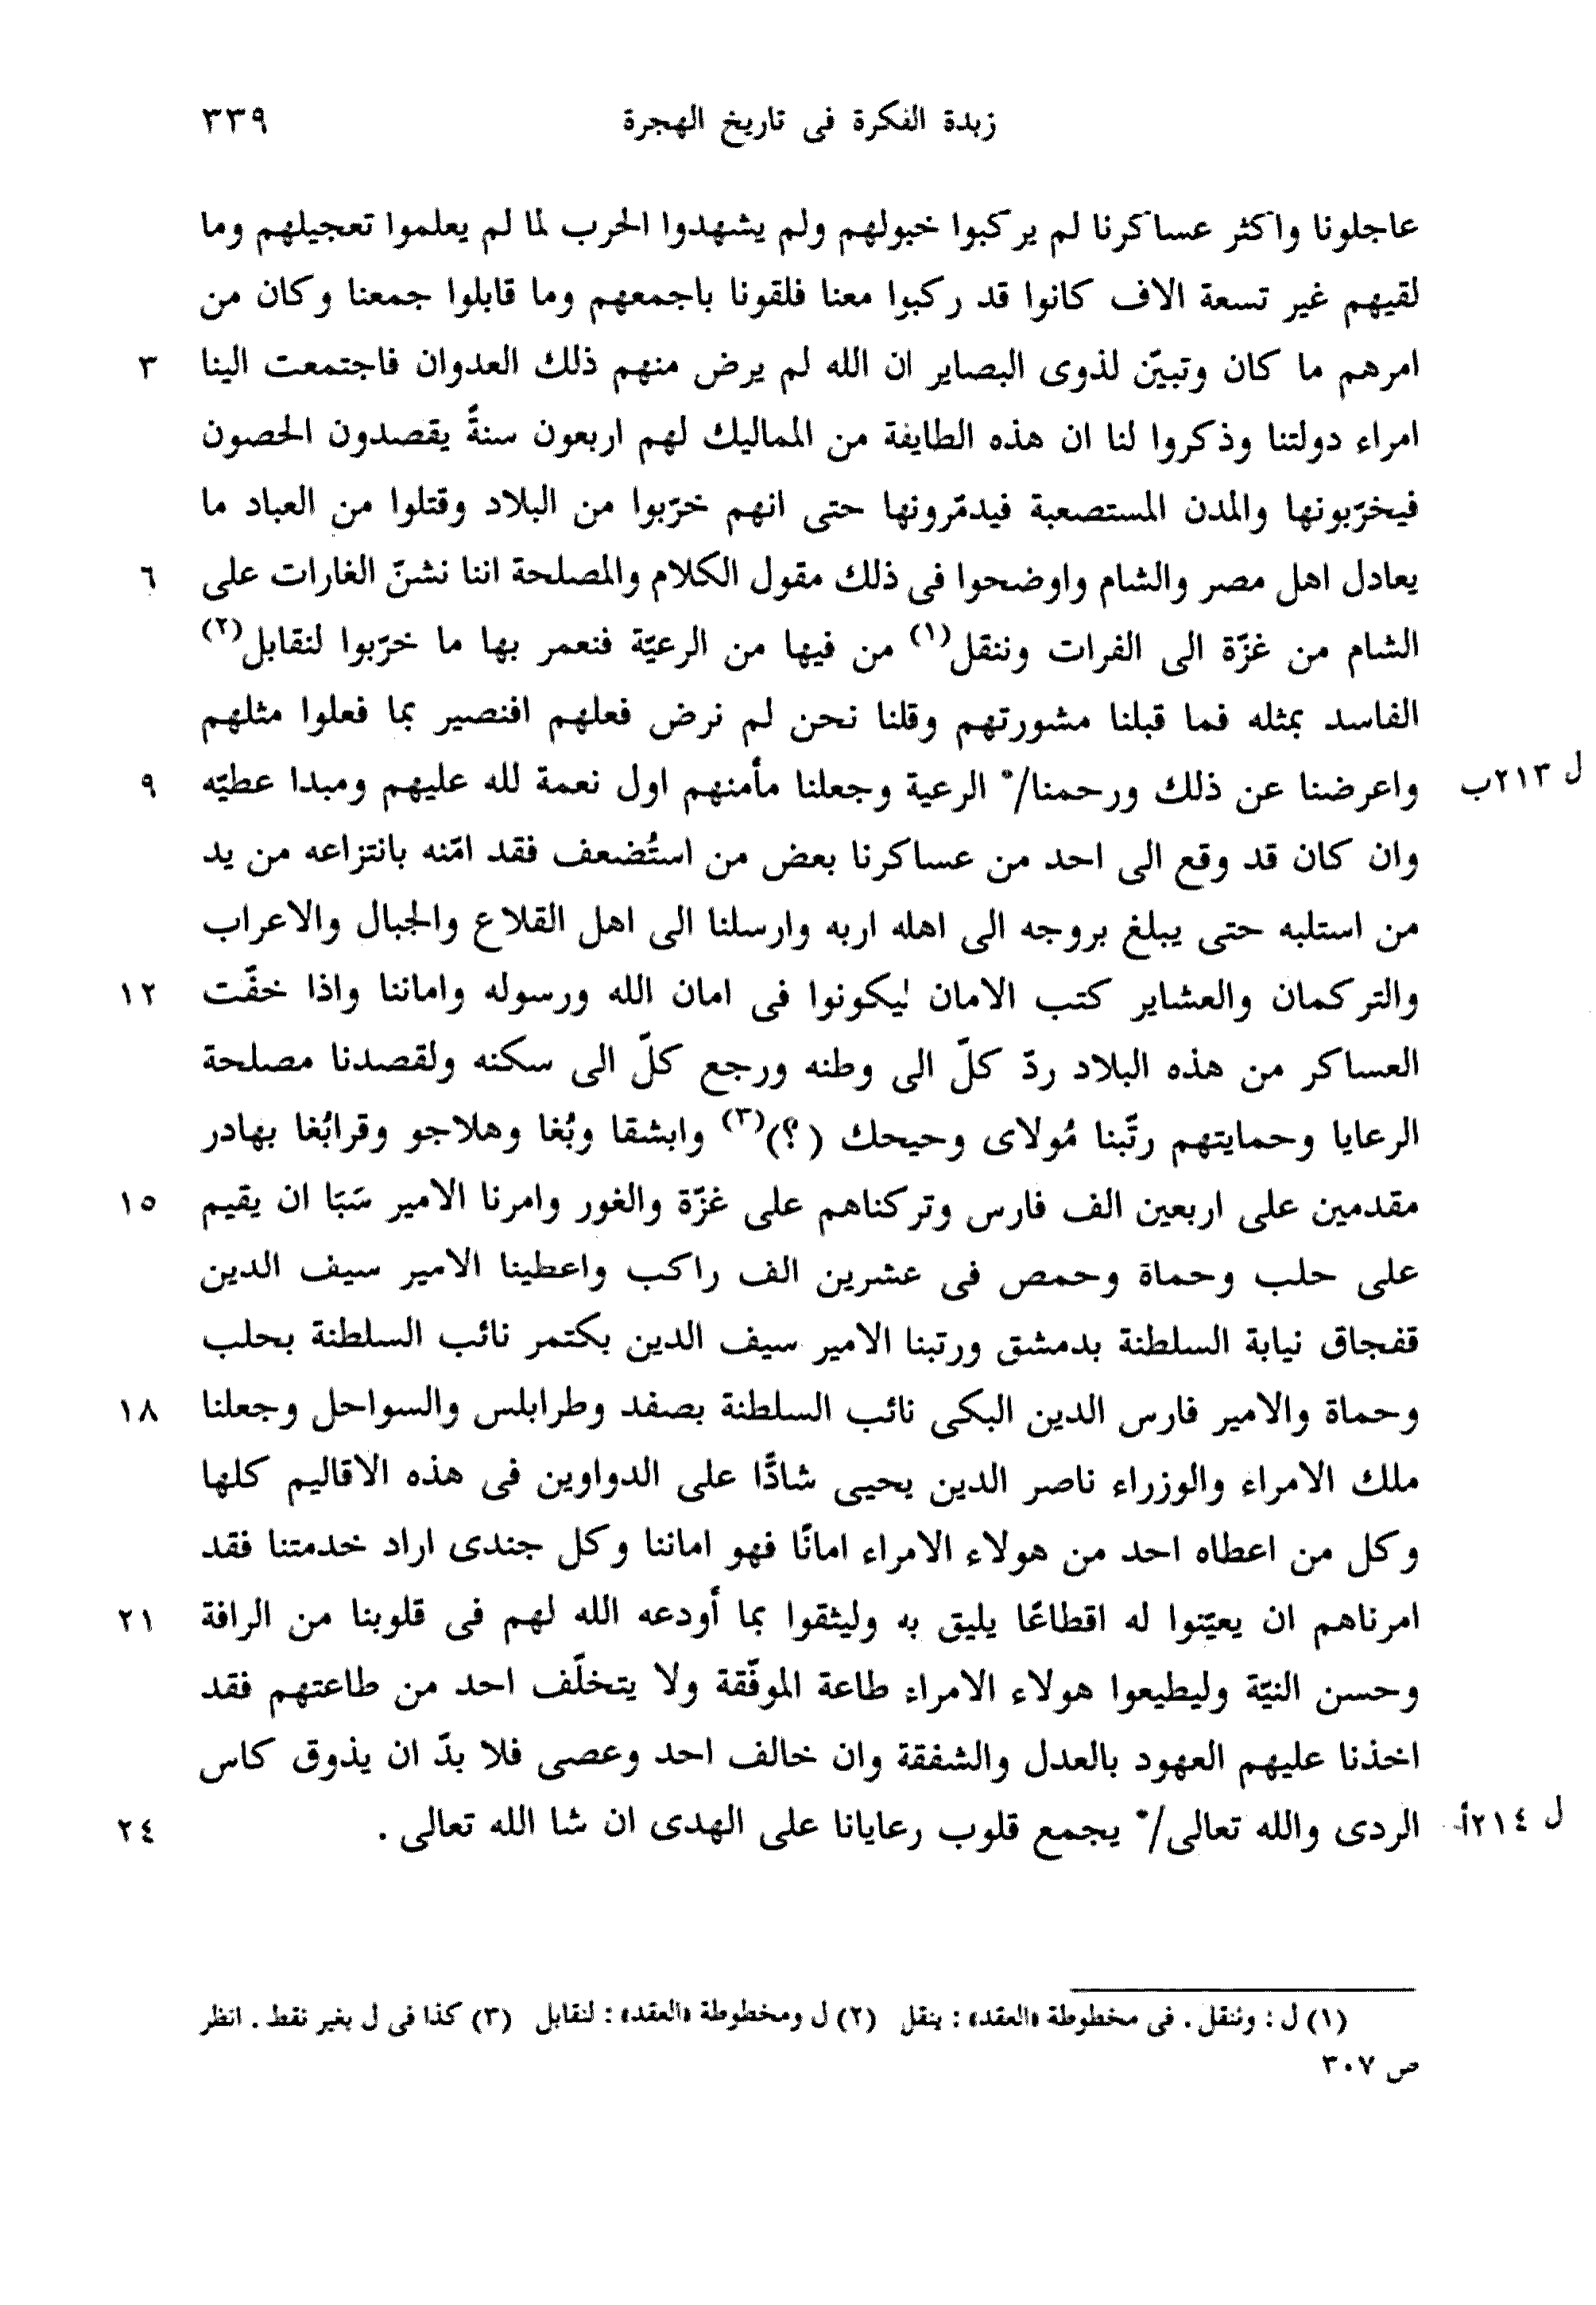 زبدة الفكرة فى تاريخ الهجرة ٣٣٩
عاجلونا واكثر عساكرنا لم يركبوا خيولهم ولم يشهدوا الحرب لما لم يعلموا تعجيلهم وما
لقيهم غير تسعة الاف كانوا قد ركبوا معنا فلقونا باجمعهم وما قابلوا جمعنا وكان من
امرهم ما كان وتبيّن لذوى البصاير ان الله لم يرض منهم ذلك العدوان فاجتمعت الينا ٣
امراء دولتنا وذكروا لنا ان هذه الطايفة من المماليك لهم اربعون سنةً يقصدون الحصون
فيخرّبونها والمدن المستصعبة فيدمّرونها حتى انهم خرّبوا من البلاد وقتلوا من العباد ما
يعادل اهل مصر والشام واوضحوا فى ذلك مقول الكلام والمصلحة اننا نشنّ الغارات على ٦
الشام من غزّة الى الفرات وننقل(١) من فيها من الرعيّة فنعمر بها ما خرّبوا لنقابل(٢)
الفاسد بمثله فما قبلنا مشورتهم وقلنا نحن لم نرض فعلهم افنصير بما فعلوا مثلهم
ل ٢١٣ب واعرضنا عن ذلك ورحمنا/* الرعية وجعلنا مأمنهم اول نعمة لله عليهم ومبدا عطيّه ٩
وان كان قد وقع الى احد من عساكرنا بعض من استُضعف فقد امّنه بانتزاعه من يد
من استلبه حتى يبلغ بروجه الى اهله اربه وارسلنا الى اهل القلاع والجبال والاعراب
والتركمان والعشاير كتب الامان ليكونوا فى امان الله ورسوله واماننا واذا خفّت ١٢
العساكر من هذه البلاد ردّ كلّ الى وطنه ورجع كلّ الى سكنه ولقصدنا مصلحة
الرعايا وحمايتهم رتّبنا مُولاى وحيحك (؟)(٣) وابشقا وبُغا وهلاجو وقرابُغا بهادر
مقدمين على اربعين الف فارس وتركناهم على غزّة والغور وامرنا الامير سَبَا ان يقيم ١٥
على حلب وحماة وحمص فى عشرين الف راكب واعطينا الامير سيف الدين
قفجاق نيابة السلطنة بدمشق ورتبنا الامير سيف الدين بكتمر نائب السلطنة بحلب
وحماة والامير فارس الدين البكى نائب السلطنة بصفد وطرابلس والسواحل وجعلنا ١٨
ملك الامراء والوزراء ناصر الدين يحيى شادًّا على الدواوين فى هذه الاقاليم كلها
وكل من اعطاه احد من هولاء الامراء امانًا فهو اماننا وكل جندى اراد خدمتنا فقد
امرناهم ان يعيّنوا له اقطاعًا يليق به وليثقوا بما أودعه الله لهم فى قلوبنا من الرافة ٢١
وحسن النيّة وليطيعوا هولاء الامراء طاعة الموفّقة ولا يتخلّف احد من طاعتهم فقد
اخذنا عليهم العهود بالعدل والشفقة وان خالف احد وعصى فلا بدّ ان يذوق كاس
ل ٢١٤أ الردى والله تعالى/* يجمع قلوب رعايانا على الهدى ان شا الله تعالى . ٢٤
(١) ل : وننقل . فى مخطوطة «العقد» : ينقل (٢) ل ومخطوطة «العقد» : لنقابل (٣) كذا فى ل بغير نقط . انظر
ص ٣٠٧